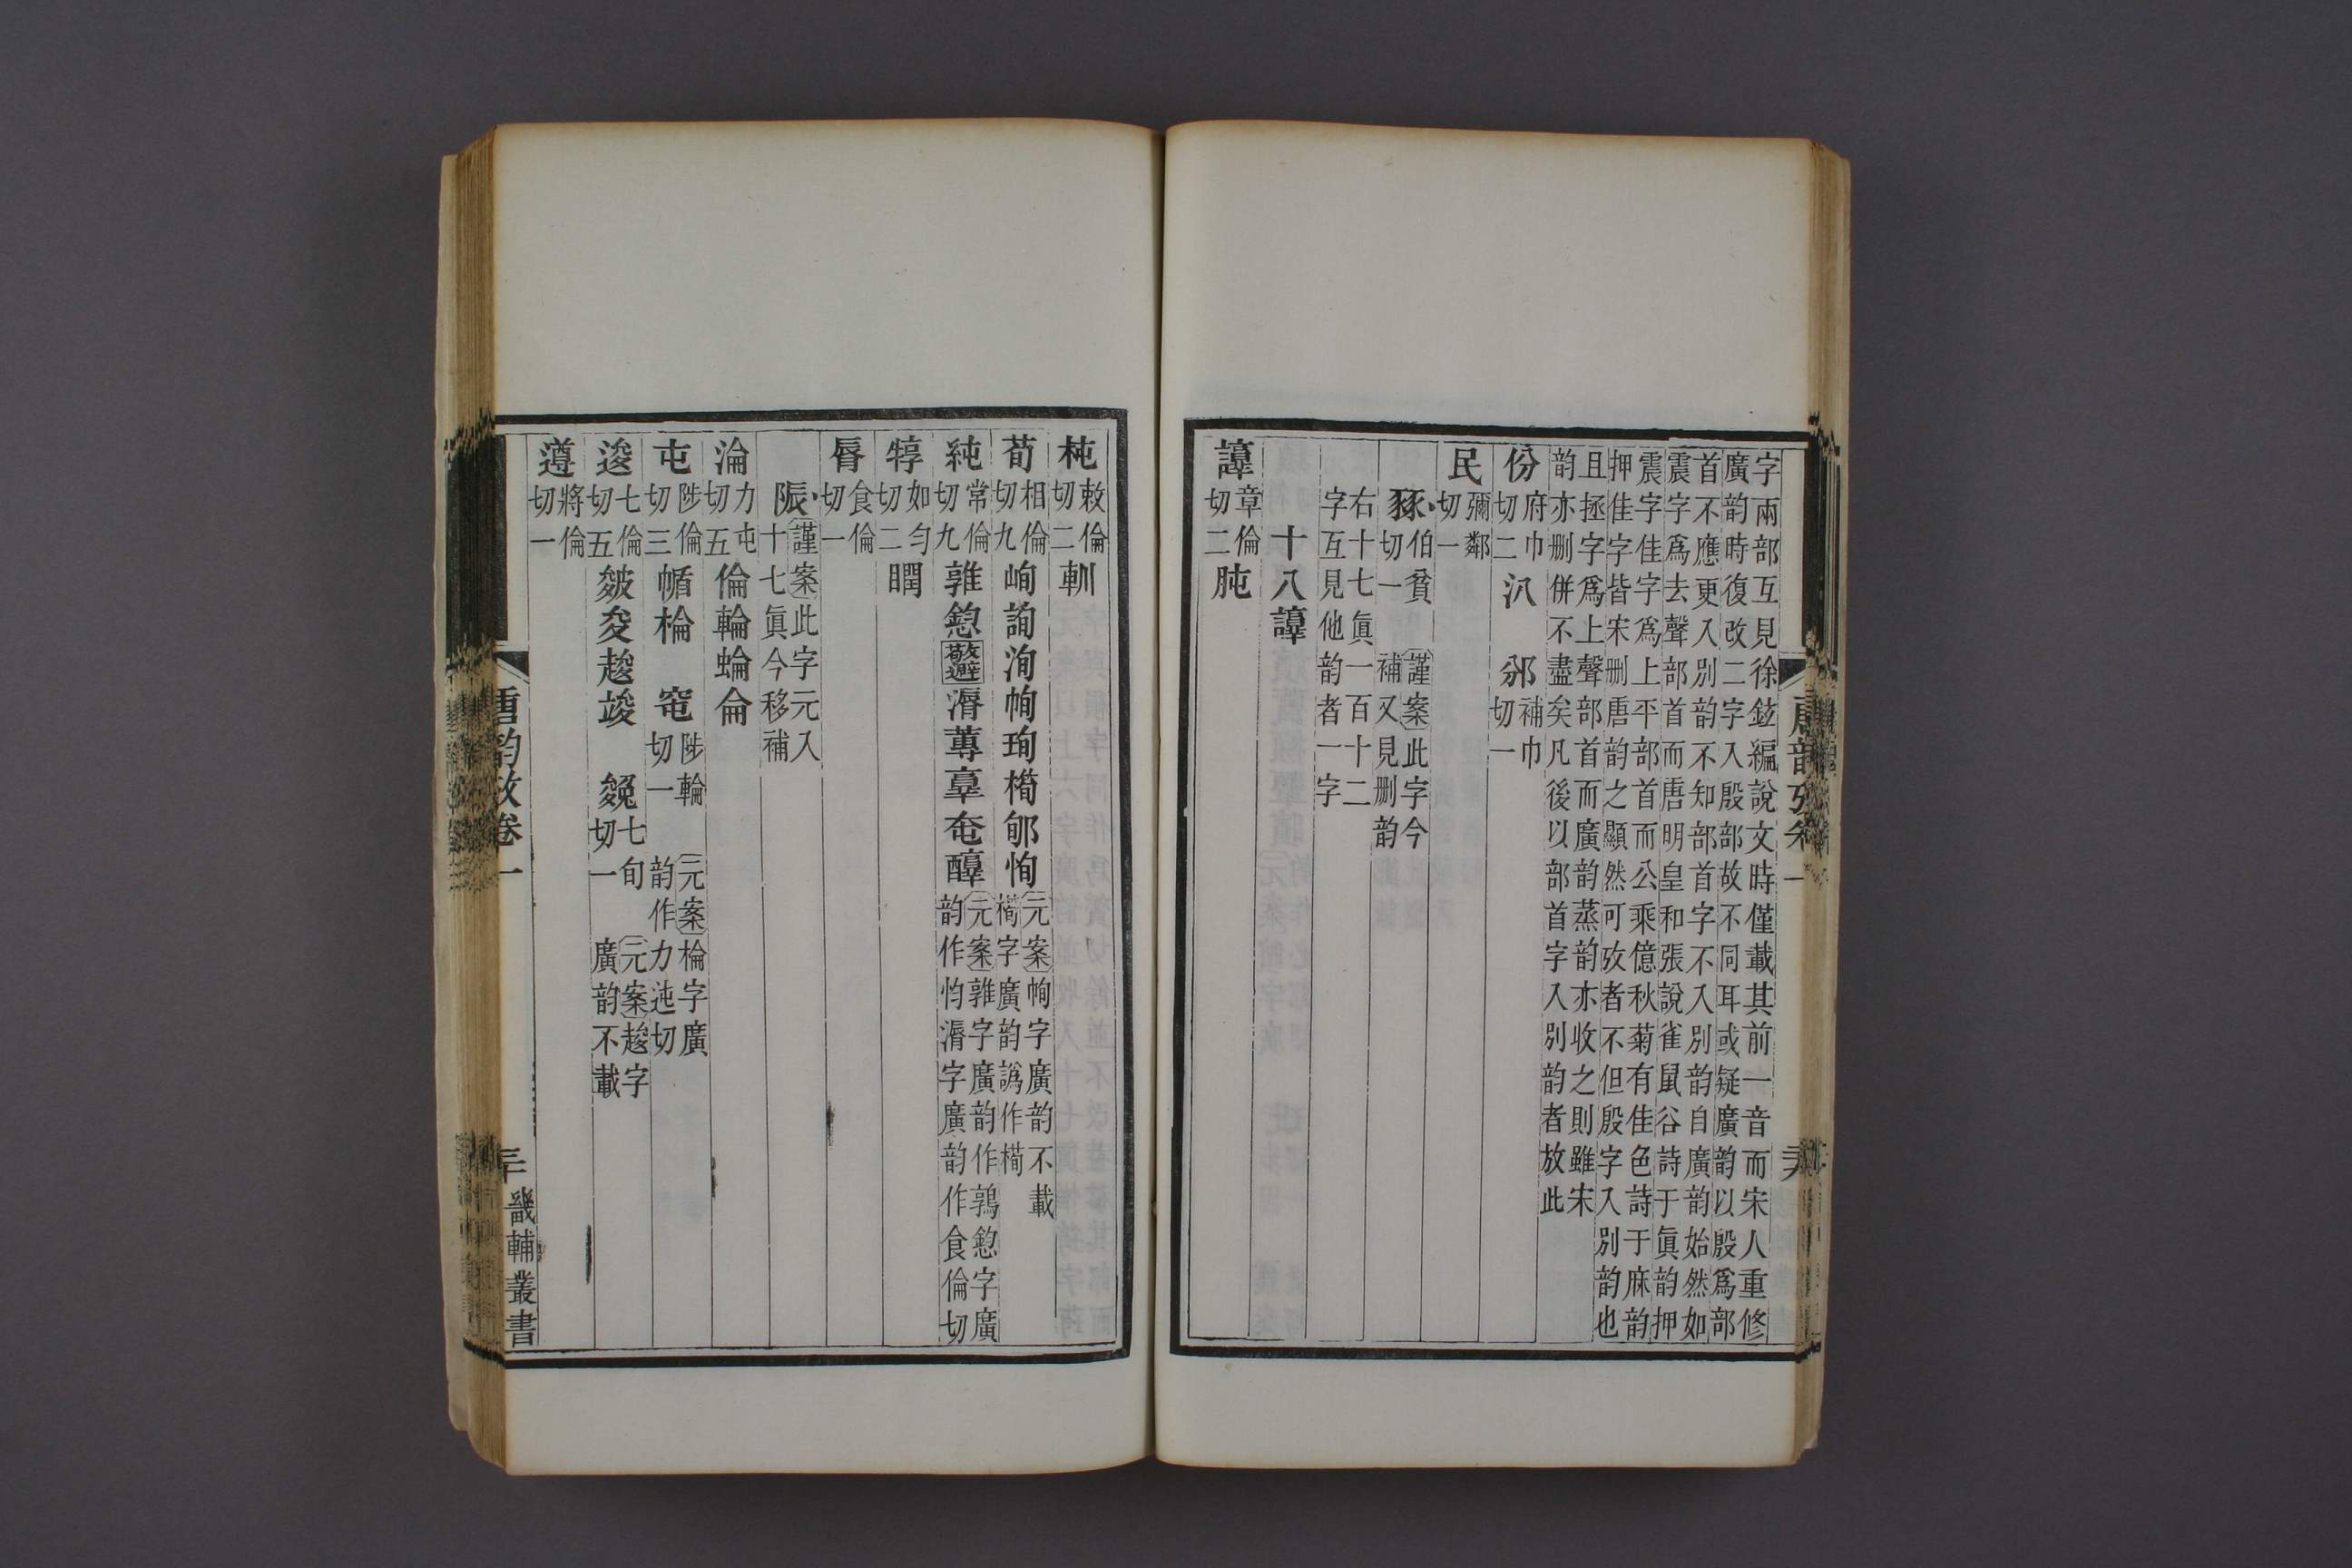 字兩部互見徐鉉編說文時僅載其前一音而宋人重修
廣韵時復改二字入殷部故不同耳或疑廣韵以殷爲部
首不應更入別韵不知部首字不入別韵自廣韵始然如
震字爲去聲部首而唐明皇和張說雀鼠谷詩于眞韵押
震字佳字爲上平部首而公乘億秋菊有佳色詩于麻韵
押佳字皆宋删唐韵之顯然可攷者不但殷字入別韵也
且拯字爲上聲部首而廣韵蒸韵亦收之則雖宋
韵亦删併不盡矣凡後以部首字入別韵者放此
份府巾切二汃 邠補巾切一
民彌鄰切一
豩伯貧切一 謹案此字今補又見删韵
右十七眞一百十二
字互見他韵者一字
十八諄
諄章倫切二肫
杶敕倫切二䡅
荀相倫切九峋詢洵㡓珣橁郇恂元案㡓字廣韵不載橁字廣韵譌作橁
純常倫切九雜鍃敬避漘蓴𦎫奄醇元案雜字廣韵作鶉鍃字廣韵作㣎漘字廣韵作食倫切
犉如勻切二瞤
脣食倫切一
陙謹案此字元入十七眞今移補
淪力屯切五倫輪蜦侖
屯陟倫切三㡒棆 窀陟輪切一 元案棆字廣韵作力迍切
逡七倫切五皴夋䞭竣 㕙七旬切一 元案䞭字廣韵不載
遵將倫切一
唐韵攷卷一
三十
畿輔叢書